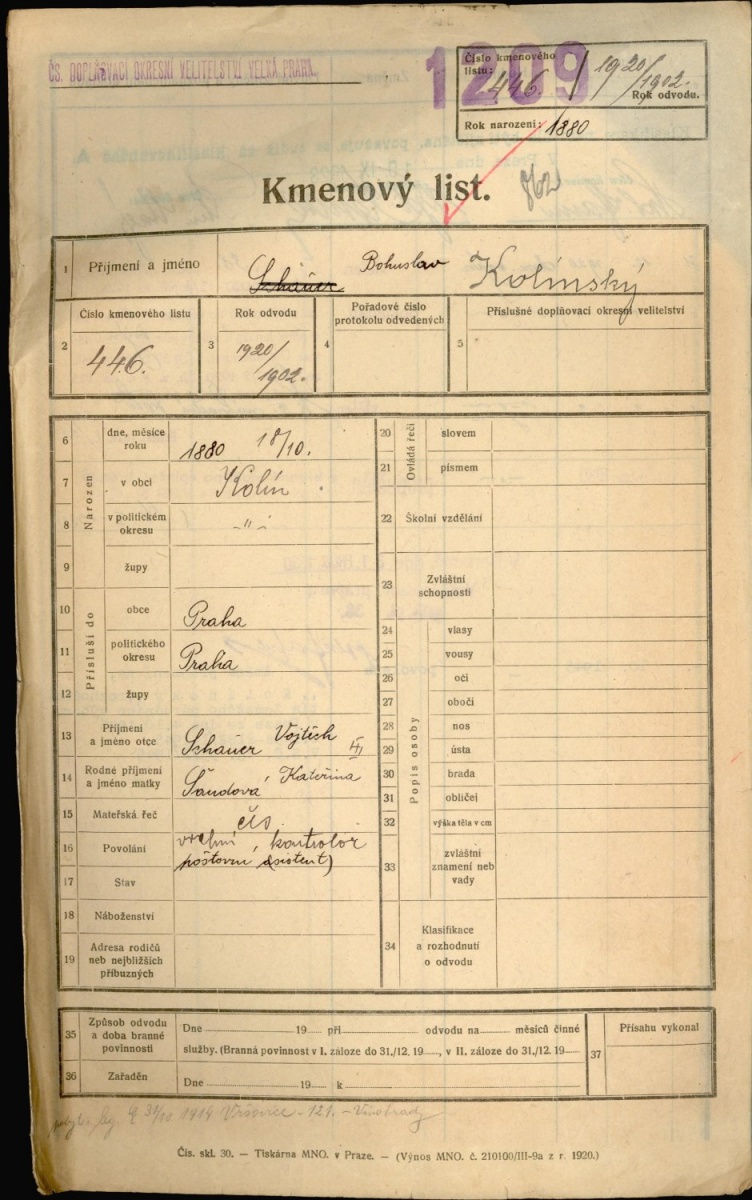 ČS. DOPLŇOVACÍ OKRESNÍ VELITELSTVÍ VELKÁ PRAHA.
1209
Číslo kmenového
listu: 446. / 1920/1902.
Rok odvodu.
Rok narození: 1880
Kmenový list.
1 Příjmení a jméno Schauer Bohuslav Kolínský
2 Číslo kmenového listu 446.
3 Rok odvodu 1920/1902.
4 Pořadové číslo protokolu odvedených
5 Příslušné doplňovací okresní velitelství
Narozen
6 dne, měsíce roku 1880 18/10.
7 v obci Kolín
8 v politickém okresu -"-
9 župy
Přísluší do
10 obce Praha
11 politického okresu Praha
12 župy
13 Příjmení a jméno otce Schauer Vojtěch
14 Rodné příjmení a jméno matky Šandová Kateřina
15 Mateřská řeč čes.
16 Povolání vrchní kontrolor
poštovní (asistent)
17 Stav
18 Náboženství
19 Adresa rodičů neb nejbližších příbuzných
Ovládá řeči
20 slovem
21 písmem
22 Školní vzdělání
23 Zvláštní schopnosti
Popis osoby
24 vlasy
25 vousy
26 oči
27 obočí
28 nos
29 ústa
30 brada
31 obličej
32 výška těla v cm
33 zvláštní znamení neb vady
34 Klasifikace a rozhodnutí o odvodu
35 Způsob odvodu a doba branné povinnosti Dne 19 při odvodu na měsíců činné
služby. (Branná povinnost v I. záloze do 31./12. 19 , v II. záloze do 31./12. 19
36 Zařaděn Dne 19 k
37 Přísahu vykonal
1914 Vršovice - 121. - Vinohrady
Čís. skl. 30. — Tiskárna MNO. v Praze. — (Výnos MNO. č. 210100/III-9a z r. 1920.)